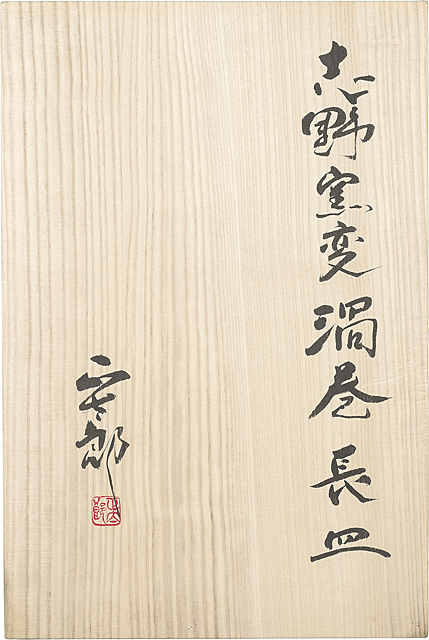 志野窯変渦巻長皿
正太郎